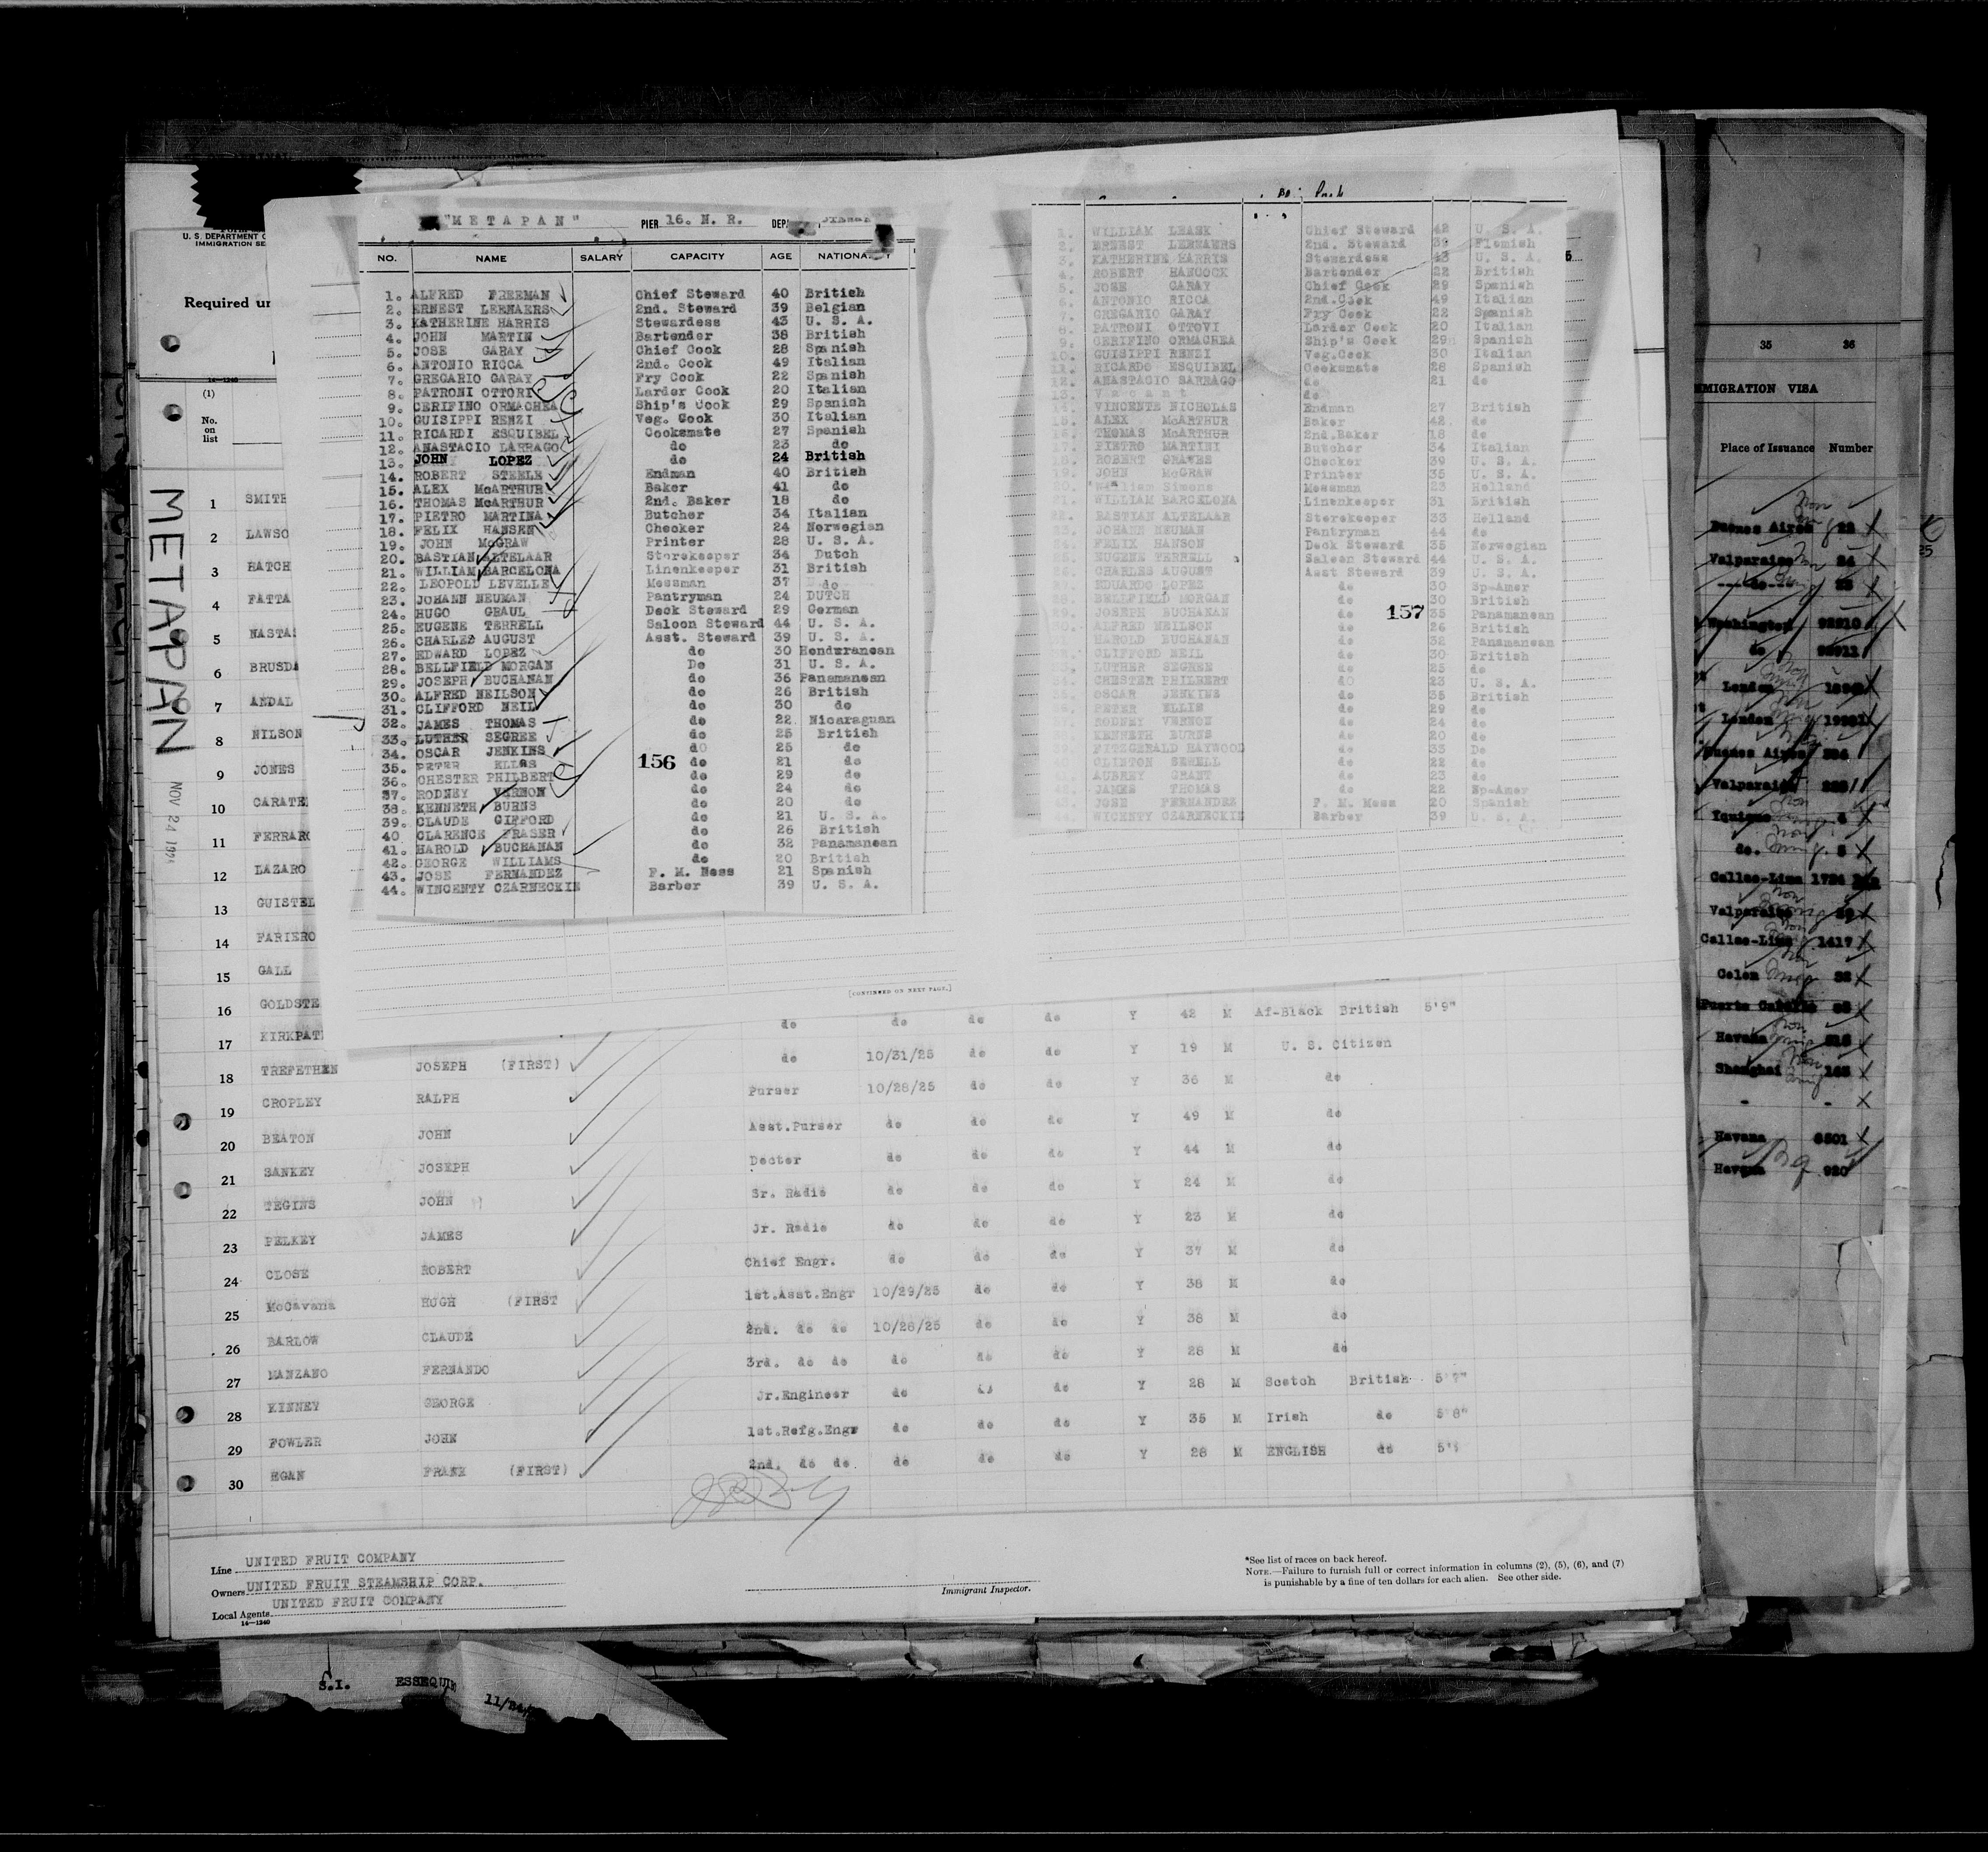 "METAPAN" PIER 16. N. R.
NO. NAME SALARY CAPACITY AGE
1. ALFRED FREEMAN Chief Steward 40 British
2. ERNEST LEENAERS 2nd. Steward 39 Belgian
3. KATHERINE HARRIS Stewardess 43 U. S. A.
4. JOHN MARTIN Bartender 38 British
5. JOSE GARAY Chief Cook 28 Spanish
6. ANTONIO RICCA 2nd. Cook 49 Italian
7. GREGARIO GARAY Fry Cook 22 Spanish
8. PATRONI OTTORI Larder Cook 20 Italian
9. CERIFINO ORMACHEA Ship's Cook 29 Spanish
10. GUISIPPI RENZI Veg. Cook 30 Italian
11. RICARDI ESQUIBEL Cooksmate 27 Spanish
12. ANASTACIO LARRAGO do 23 do
13. JOHN LOPEZ do 24 British
14. ROBERT STEELE Endman 40 British
15. ALEX McARTHUR Baker 41 do
16. THOMAS McARTHUR 2nd. Baker 18 do
17. PIETRO MARTINA Butcher 34 Italian
18. FELIX HANSEN Checker 24 Norwegian
19. JOHN McGRAW Printer 28 U. S. A.
20. BASTIAN ALTELAAR Storekeeper 34 Dutch
21. WILLIAM BARCELONA Linenkeeper 31 British
22. LEOPOLD LEVELLE Messman 37 do
23. JOHANN NEUMAN Pantryman 24 DUTCH
24. HUGO GRAUL Deck Steward 29 German
25. EUGENE TERRELL Saloon Steward 44 U. S. A.
26. CHARLES AUGUST Asst. Steward 39 U. S. A.
27. EDWARD LOPEZ do 30 Honduranean
28. BELLFIELD MORGAN Do 31 U. S. A.
29. JOSEPH BUCHANAN do 36 Panamanean
30. ALFRED NEILSON do 26 British
31. CLIFFORD NEIL do 30 do
32. JAMES THOMAS do 22 Nicaraguan
33. LUTHER SEGREE do 25 British
34. OSCAR JENKINS do 25 do
35. PETER ELLAS 156 do 21 do
36. CHESTER PHILBERT do 29 do
37. RODNEY VERNON do 24 do
38. KENNETH BURNS do 20 do
39. CLAUDE GIFFORD do 21 U. S. A.
40 CLARENCE FRASER do 26 British
41. HAROLD BUCHANAN do 32 Panamanean
42. GEORGE WILLIAMS do 20 British
43. JOSE FERNANDEZ F. M. Mess 21 Spanish
44. WINCENTY CZARNECKIN Barber 39 U. S. A.
1. WILLIAM LEASK Chief Steward 42 U. S. A.
2. ERNEST LEENAERS 2nd. Steward 39 Flemish
3. KATHERINE HARRIS Stewardess 43 U. S. A.
4. ROBERT HANCOCK Bartender 22 British
5. JOSE GARAY Chief Cook 29 Spanish
6. ANTONIO RICCA 2nd.Cook 49 Italian
7. GREGARIO GARAY Fry Cook 22 Spanish
8. PATRONI OTTOVI Larder Cook 20 Italian
9. CERIFINO ORMACHEA Ship's Cook 29 Spanish
10. GUISIPPI RENZI Veg.Cook 30 Italian
11. RICARDO ESQUIBEL Cooksmate 28 Spanish
12. ANASTACIO SARRAGO do 21 do
13. Vacant do
14. VINCENTE NICHOLAS Endman 27 British
15. ALEX McARTHUR Baker 42. do
16. THOMAS McARTHUR 2nd.Baker 18 do
17. PIETRO MARTINI Butcher 34 Italian
18. ROBERT GRAVES Checker 39 U. S. A.
19. JOHN McGRAW Printer 35 U. S. A.
20. William Simons Messman 23 Holland
21. WILLIAM BARCELONA Linenkeeper 31 British
22. BASTIAN ALTELAAR Storekeeper 33 Holland
23. JOHANN NEUMAN Pantryman 44 do
24. FELIX HANSON Deck Steward 35 Norwegian
25. EUGENE TERRELL Saloon Steward 44 U. S. A.
26. CHARLES AUGUST Asst Steward 39 U. S. A.
27. EDUARDO LOPEZ do 30 Sp-Amer
28. BELLFIELD MORGAN do 30 British
29. JOSEPH BUCHANAN do 157 35 Panamanean
30. ALFRED NEILSON do 26 British
HAROLD BUCHANAN do 32 Panamanean
CLIFFORD NEIL do 30 British
LUTHER SEGREE do 25 do
34. CHESTER PHILBERT do 23 U. S. A.
OSCAR JENKINS do 35 British
PETER ELLIS do 29 do
RODNEY VERNON do 24 do
KENNETH BURNS do 20 do
39. FITZGERALD HAYWOOD do 33 De
40. CLINTON SEWELL do 22 do
41. AUBREY GRANT do 23 do
42. JAMES THOMAS do 22 Sp-Amer
43. JOSE FERNANDEZ F. M. Mess 20 Spanish
44. WICKNTY CZARNECKIE Barber 39 U. S. A.
U. S. DEPARTMENT
IMMIGRATION SE
Required ur
14-1240
(1)
No. on list
METAPAN
NOV 24 192
1 SMITH
2 LAWSO
3 HATCH
4 FATTA
5 NASTA
6 BRUSDA
7 ANDAL
8 NILSON
9 JONES
10 CARATE
11 FERRARO
12 LAZARO
13 GUISTEL
14 FARIERO
15 GALL
16 GOLDSTE
17 KIRKPAT
(CONTINUED ON NEXT PAGE.)
do do do do Y 42 M Af-Black British 5'9"
18 TREFETHEN JOSEPH (FIRST) do 10/31/25 do do Y 19 M U. S. Citizen
19 CROPLEY RALPH Purser 10/28/25 do do Y 36 M do
20 BEATON JOHN Asst.Purser do do do Y 49 M do
21 SANKEY JOSEPH Doctor do do do Y 44 M do
22 TEGINS JOHN Sr. Radio do do do Y 24 M do
23 PELKEY JAMES Jr. Radio do do do Y 23 M do
24 CLOSE ROBERT Chief Engr. do do do Y 37 M do
25 McCavana HUGH (FIRST 1st.Asst.Engr 10/29/25 do do Y 38 M do
26 BARLOW CLAUDE 2nd. do do 10/28/25 do do Y 38 M do
27 MANZANO FERNANDO 3rd. do do do do do Y 28 M do
28 KINNEY GEORGE Jr.Engineer do do do Y 28 M Scotch British
29 FOWLER JOHN 1st.Refg.Engr do do do Y 35 M Irish do 5'8"
30 EGAN FRANK (FIRST) 2nd. do do. do do do Y 28 M ENGLISH do
Line UNITED FRUIT COMPANY
Owners UNITED FRUIT STEAMSHIP CORP.
Local Agents UNITED FRUIT COMPANY
14-1240
Immigrant Inspector.
*See list of races on back hereof.
NOTE.—Failure to furnish full or correct information in columns (2), (5), (6), and (7)
is punishable by a fine of ten dollars for each alien. See other side.
35 36
MMIGRATION VISA
Place of Issuance Number
Buenes Aires 22
Valparaiso 24
do 23
Washington 92910
do
London
London
Buenes Aires
Valparaiso
Yquique
do.
Callao-Lima 1724
Valparaiso
Callao-Lima 1417
Colon
Havana
Shanghai 165
Havana 6501
Havana 920
S.I. ESSEQUIB